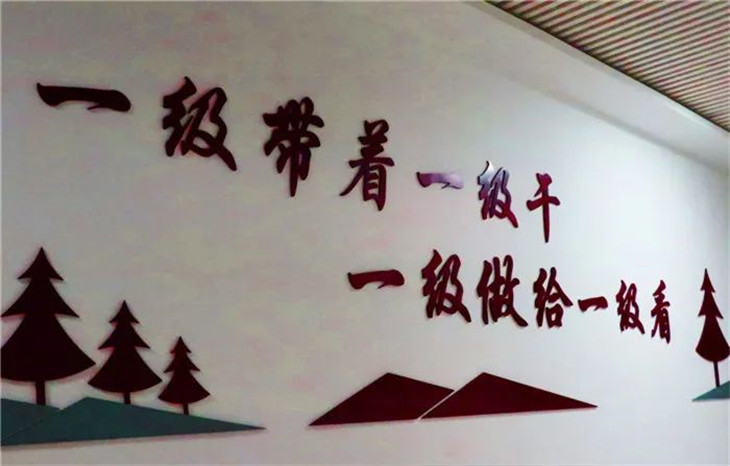 一级带着一级干
一级做给一级看